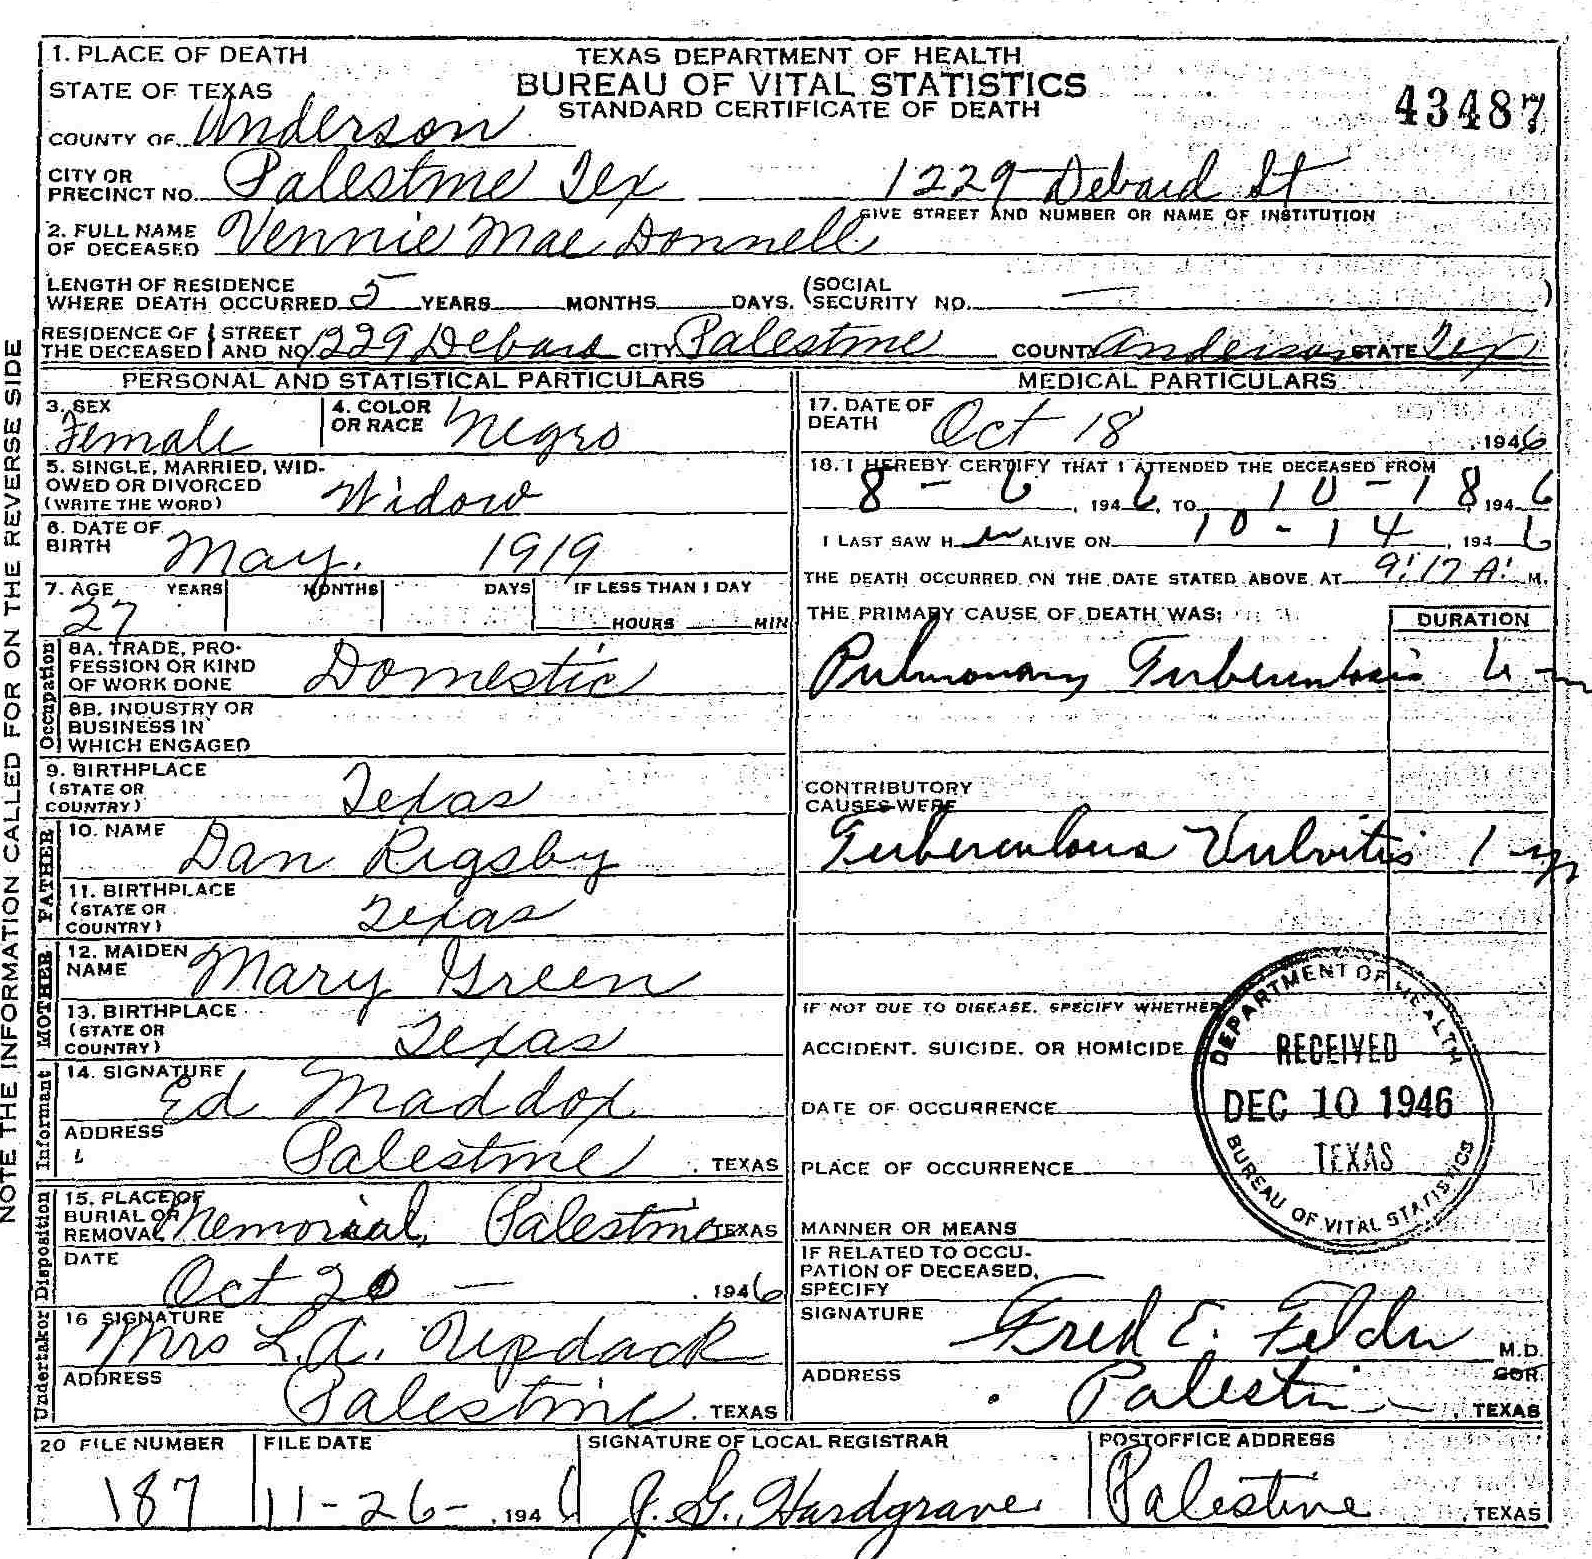 1. PLACE OF DEATH
TEXAS DEPARTMENT OF HEALTH
BUREAU OF VITAL STATISTICS
STANDARD CERTIFICATE OF DEATH
43487
STATE OF TEXAS
COUNTY OF Anderson
CITY OR PRECINCT NO. Palestine Tex 1229 Debard St
GIVE STREET AND NUMBER OR NAME OF INSTITUTION
2. FULL NAME OF DECEASED Vennie Mae Donnell
LENGTH OF RESIDENCE WHERE DEATH OCCURRED 5 YEARS MONTHS DAYS. (SOCIAL SECURITY NO. — )
RESIDENCE OF THE DECEASED STREET AND NO. 1229 Debard CITY Palestine COUNTY Anderson STATE Tex
PERSONAL AND STATISTICAL PARTICULARS
3. SEX Female
4. COLOR OR RACE Negro
5. SINGLE, MARRIED, WIDOWED OR DIVORCED (WRITE THE WORD) Widow
6. DATE OF BIRTH May. 1919
7. AGE YEARS MONTHS DAYS IF LESS THAN 1 DAY
27 HOURS MIN
Occupation
8A. TRADE, PROFESSION OR KIND OF WORK DONE Domestic
8B. INDUSTRY OR BUSINESS IN WHICH ENGAGED
9. BIRTHPLACE (STATE OR COUNTRY) Texas
FATHER
10. NAME Dan Rigsby
11. BIRTHPLACE (STATE OR COUNTRY) Texas
MOTHER
12. MAIDEN NAME Mary Green
13. BIRTHPLACE (STATE OR COUNTRY) Texas
Informant
14. SIGNATURE Ed Maddox
ADDRESS Palestine, TEXAS
Disposition
15. PLACE OF BURIAL OR REMOVAL Memorial, Palestine TEXAS
DATE Oct 20 — , 1946
Undertaker
16 SIGNATURE Mrs L.A.
ADDRESS Palestine, TEXAS
MEDICAL PARTICULARS
17. DATE OF DEATH Oct 18, 1946
18. I HEREBY CERTIFY THAT I ATTENDED THE DECEASED FROM
8 - 6, 1946, TO 10-18, 1946
I LAST SAW H er ALIVE ON 10 - 14, 1946
THE DEATH OCCURRED ON THE DATE STATED ABOVE AT 9:17 A. M.
THE PRIMARY CAUSE OF DEATH WAS: DURATION
Pulmonary Tuberculosis 6 - m
CONTRIBUTORY CAUSES WERE
Tuberculous Vulvitis 1 - yr
IF NOT DUE TO DISEASE, SPECIFY WHETHER
ACCIDENT, SUICIDE, OR HOMICIDE
DATE OF OCCURRENCE
PLACE OF OCCURRENCE
MANNER OR MEANS
IF RELATED TO OCCUPATION OF DECEASED, SPECIFY
SIGNATURE Fred E. Felder M.D. COR.
ADDRESS Palestine, TEXAS
DEPARTMENT OF HEALTH
RECEIVED
DEC 10 1946
TEXAS
BUREAU OF VITAL STATISTICS
20 FILE NUMBER 187
FILE DATE 11-26-, 1946
SIGNATURE OF LOCAL REGISTRAR J. G. Hardgrave
POSTOFFICE ADDRESS Palestine, TEXAS
NOTE THE INFORMATION CALLED FOR ON THE REVERSE SIDE